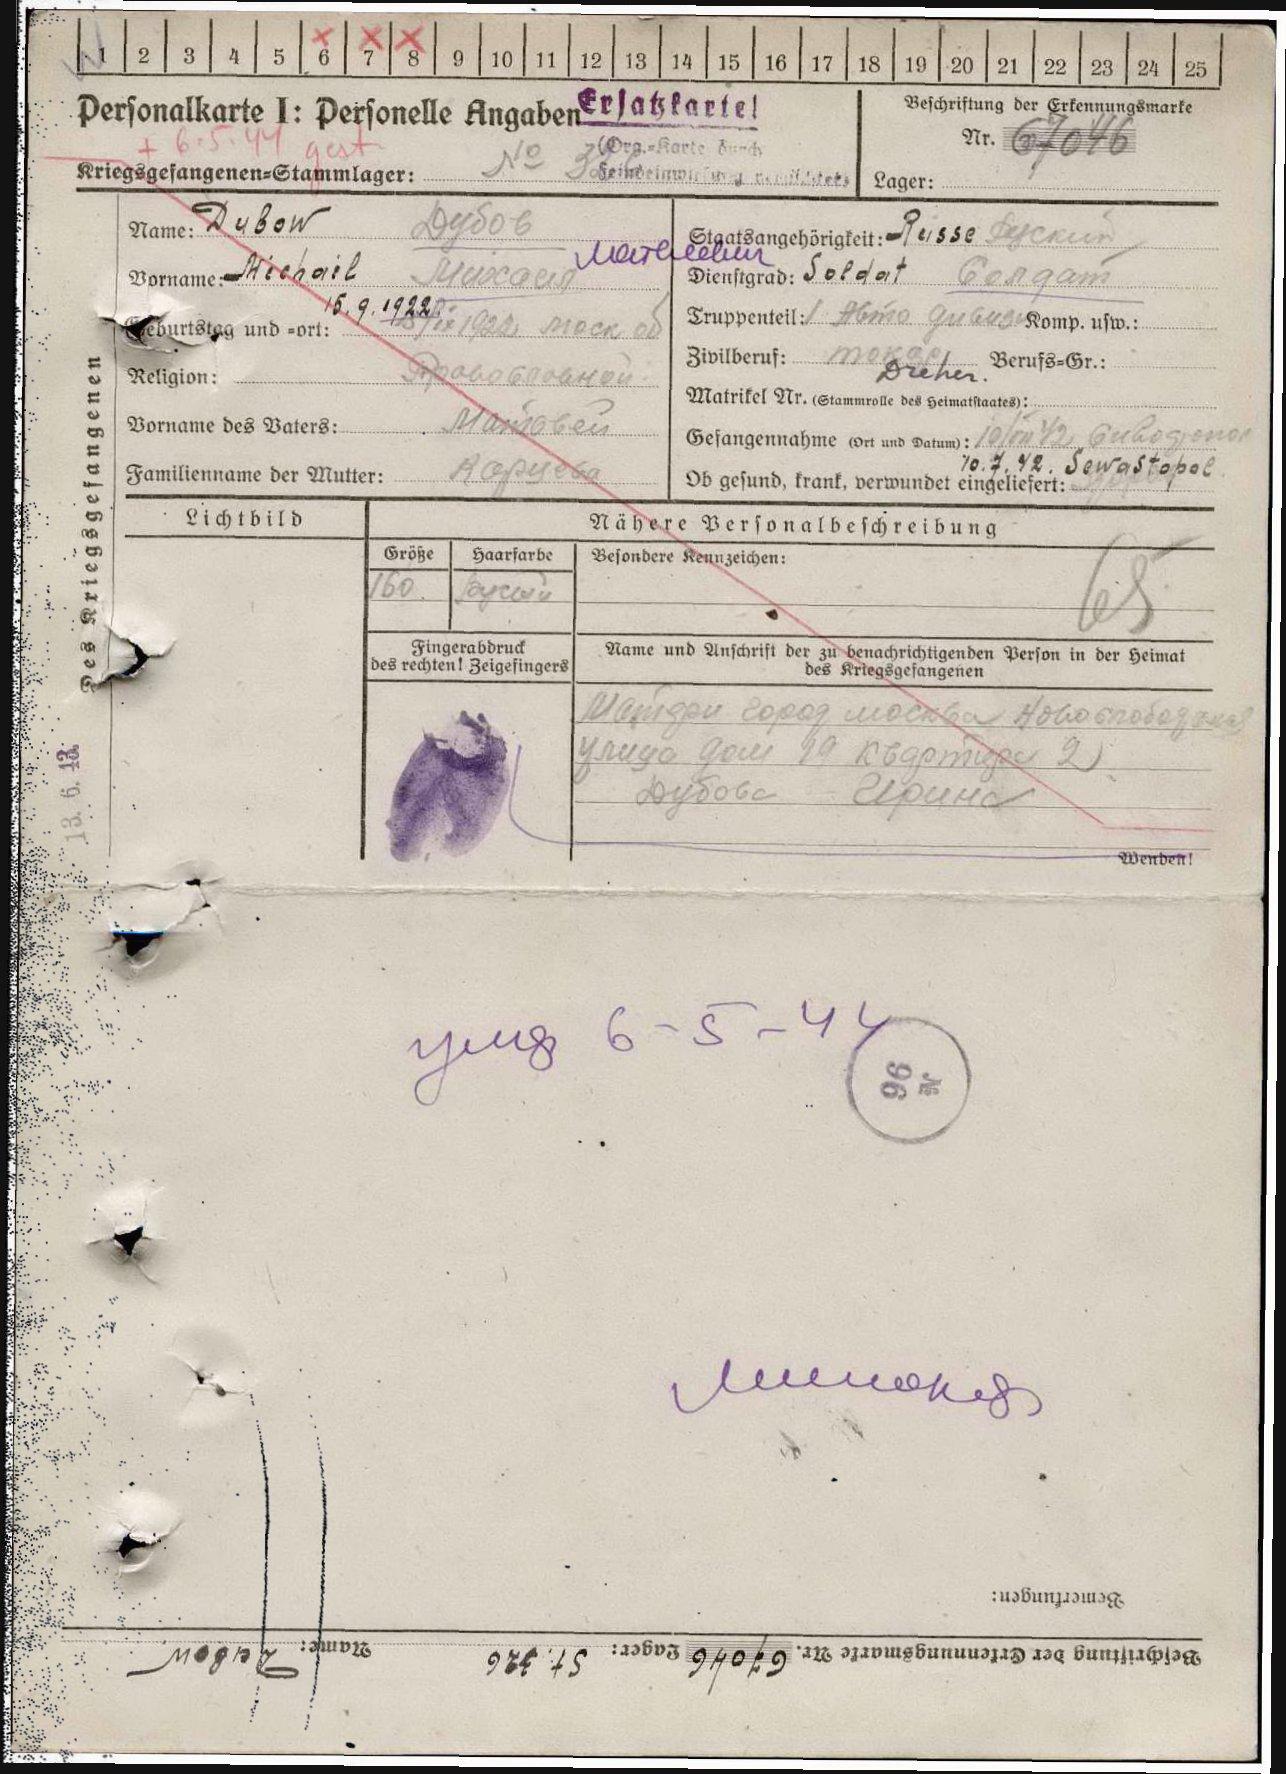 1 2 3 4 5 6 7 8 9 10 11 12 13 14 15 16 17 18 19 20 21 22 23 24 25
Personalkarte I: Personelle Angaben Ersatzkarte!
Beschriftung der Erkennungsmarke
Nr. 67046
+ 6.5.44 gest.
(Org.-Karte durch
Kriegsgefangenen-Stammlager: No
Feindeinwirkung vernichtet)
Lager:
Des Kriegsgefangenen
13. 6. 43
Name: Dubow Дубов
Матвеевич
Vorname: Michail Михаил
15.9.1922.
Geburtstag und -ort: 1922 моск об
Religion: Православной
Vorname des Vaters: Матовей
Familienname der Mutter:
Staatsangehörigkeit: Russe Руский
Dienstgrad: Soldat Солдат
Truppenteil: 1 Авто дивизи Komp. usw.:
Zivilberuf: токар Berufs-Gr.:
Dreher.
Matrikel Nr. (Stammrolle des Heimatstaates):
Gefangennahme (Ort und Datum): 10/VII 42
10.7.42. Sewastopol
Ob gesund, krank, verwundet eingeliefert:
Lichtbild
Nähere Personalbeschreibung
Größe
Haarfarbe
Besondere Kennzeichen:
160.
Русый
65
Fingerabdruck
des rechten! Zeigefingers
Name und Anschrift der zu benachrichtigenden Person in der Heimat
des Kriegsgefangenen
город москва Новослободская
улица дом 19 квартира 2
Дубова Ирина
Wenden!
умер 6-5-44
№
96
Bemerkungen:
Beschriftung der Erkennungsmarke Nr. 67046 Lager: St. 326 Name: Dubow